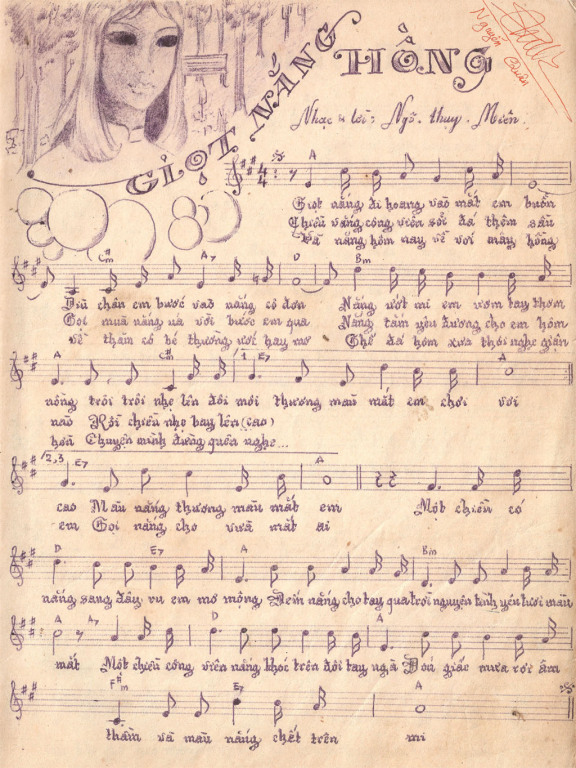 Nguyên
Quân
GIỌT NẮNG HỒNG
Nhạc & lời: Ngô. thụy. Miên.
A
Giọt nắng đi hoang vào mắt em buồn
Chiều vàng công viên sỏi đá thêm sầu
Và nắng hôm nay về với mây hồng
C#m A7 D Bm
Dìu chân em bước vào nắng cô đơn Nắng ướt mi em ươm tay thơm
Gọi mưa nắng và với bước em qua Nắng tắm yêu đương cho em hôm
về thăm cô bé thương với hay mơ Ghế đá hôm xưa thôi nghe giận
A C# 1. E7 A
nồng trôi trôi nhẹ lên đôi môi thương màu mắt em chơi vơi
nào Rồi chiều nhẹ bay lên (cao)
hờn Chuyện mình đừng quên nghe...
2,3 E7 A
cao Màu nắng thương màu mắt em Một chiều có
em Gọi nắng cho vừa mắt ai
D E7 A Bm
nắng sang đây ru em mơ mộng Đem nắng cho tay qua trời nguyên tình yêu tươi màu
A7 D A
mắt Một chiều công viên nắng khóc trên đôi tay ngà Đón giấc mưa rơi âm
F#m E7 A
thầm và màu nắng chết trên mi